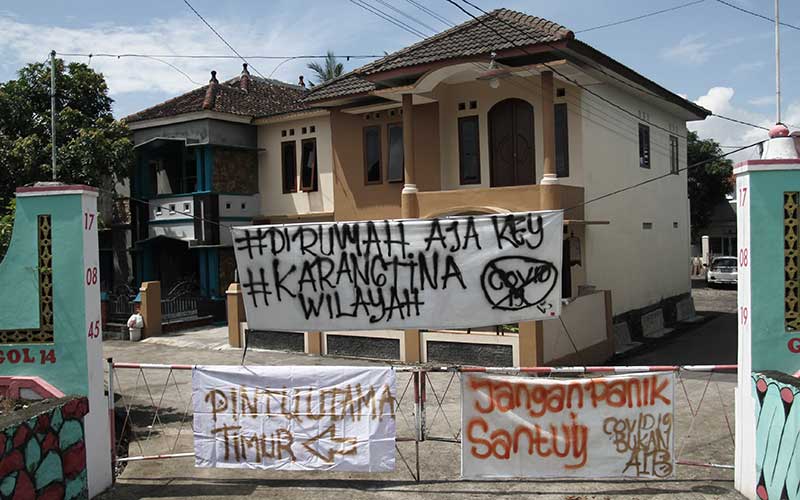 #DI RUMAH AJA KEY
#KARANGTINA
WILAYAH
COVID
19
17
08
45
GOL 14
17
08
19
PINTU UTAMA
TIMUR
Jangan Panik
Santuy
COVID 19
BUKAN
AIB